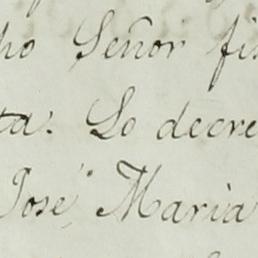 ho Señor fis
ta. Lo decre
José Maria